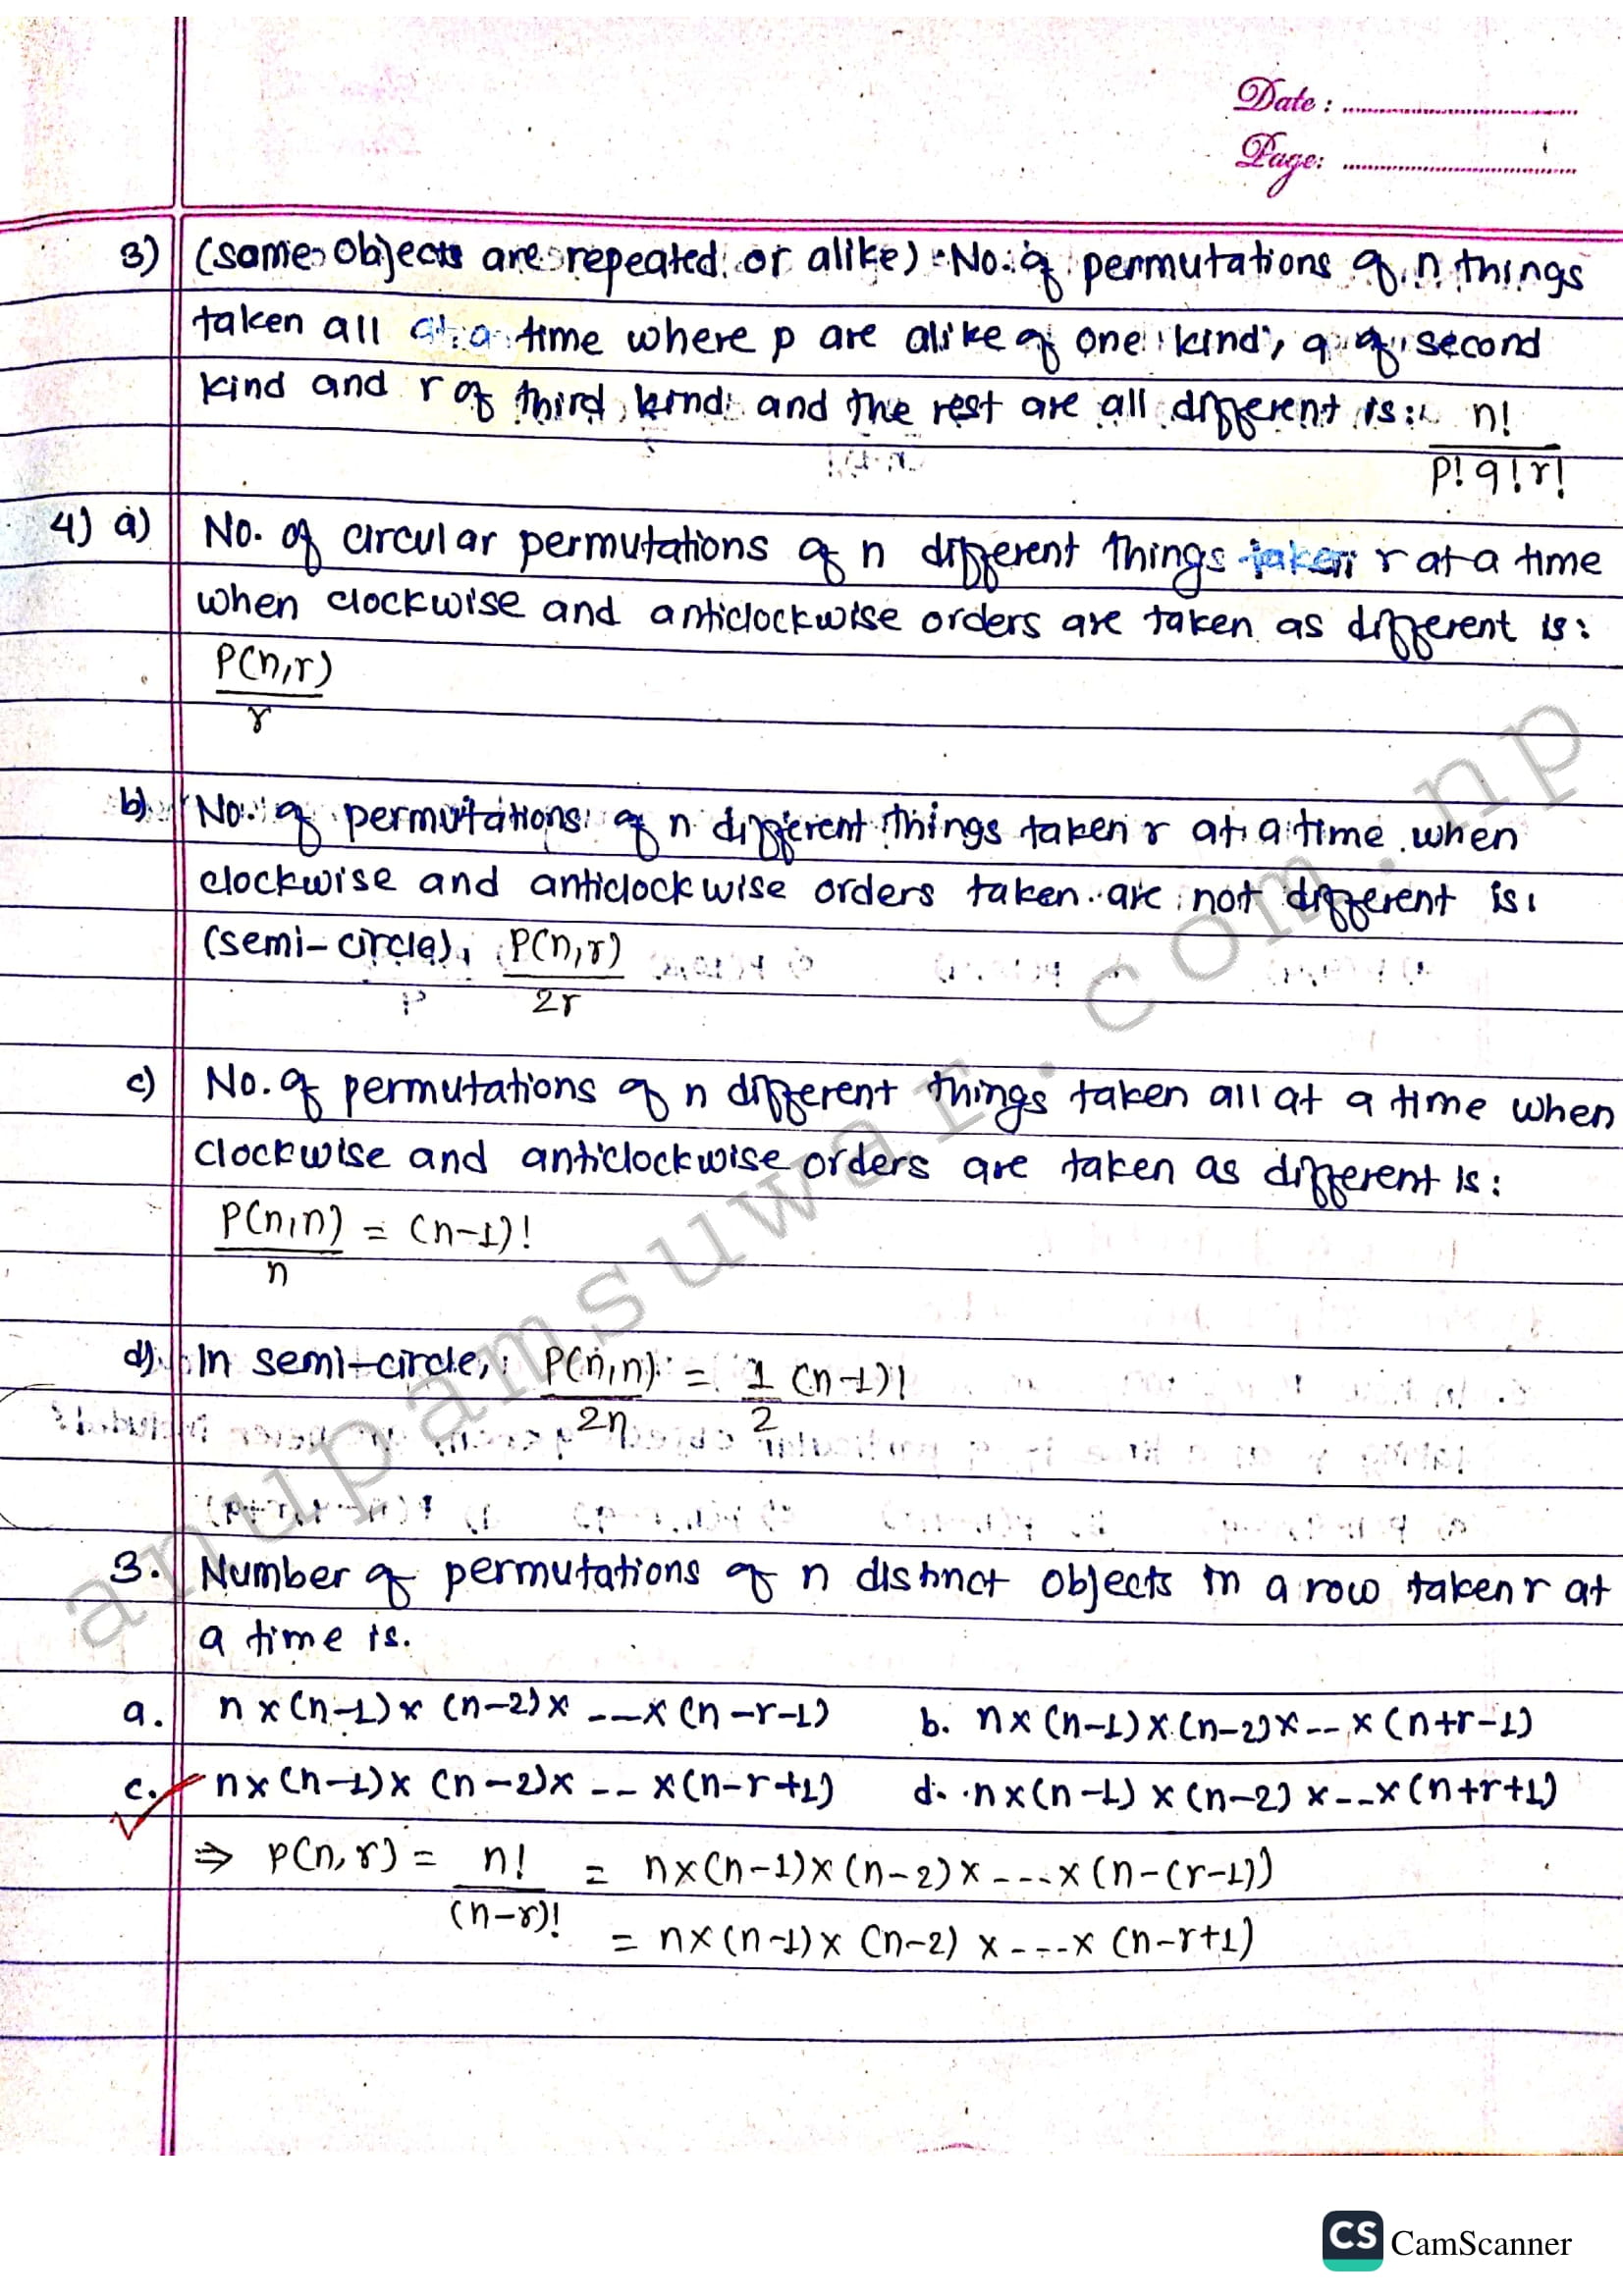 Date : ..............................
Page: ..............................
3) (some objects are repeated or alike) - No. of permutations of n things
taken all at a time where p are alike of one kind, q of second
kind and r of third kind and the rest are all different is: n!
p! q! r!
4) a) No. of circular permutations of n different things taken r at a time
when clockwise and anticlockwise orders are taken as different is:
P(n,r)
r
b) No. of permutations of n different things taken r at a time when
clockwise and anticlockwise orders taken are not different is:
(semi-circle), P(n,r)
2r
c) No. of permutations of n different things taken all at a time when
clockwise and anticlockwise orders are taken as different is:
P(n,n) = (n-1)!
n
d). In semi-circle, P(n,n) = 1 (n-1)!
2n 2
3. Number of permutations of n distinct objects in a row taken r at
a time is.
a. n x (n-1) x (n-2) x ---x (n-r-1) b. n x (n-1) x (n-2) x -- x (n+r-1)
c. n x (n-1) x (n-2) x -- x (n-r+1) d. n x (n-1) x (n-2) x --x (n+r+1)
⇒ P(n,r) = n! = n x (n-1) x (n-2) x ---- x (n-(r-1))
(n-r)!
= n x (n-1) x (n-2) x ---- x (n-r+1)
anupamsuwar.com.np
CS CamScanner